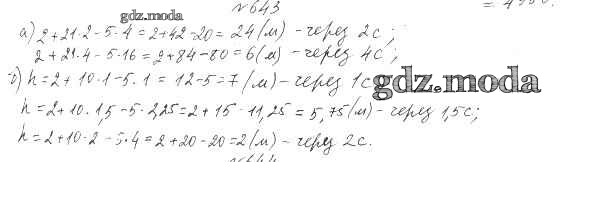 №643
gdz.moda
а) 2+21·2-5·4=2+42-20=24(м)-через 2с;
2+21·4-5·16=2+84-80=6(м)-через 4с;
б) h=2+10·1-5·1=12-5=7(м)-через 1с
gdz.moda
h=2+10·1,5-5·2,25=2+15-11,25=5,75(м)-через 1,5с;
h=2+10·2-5·4=2+20-20=2(м)-через 2с.
№644